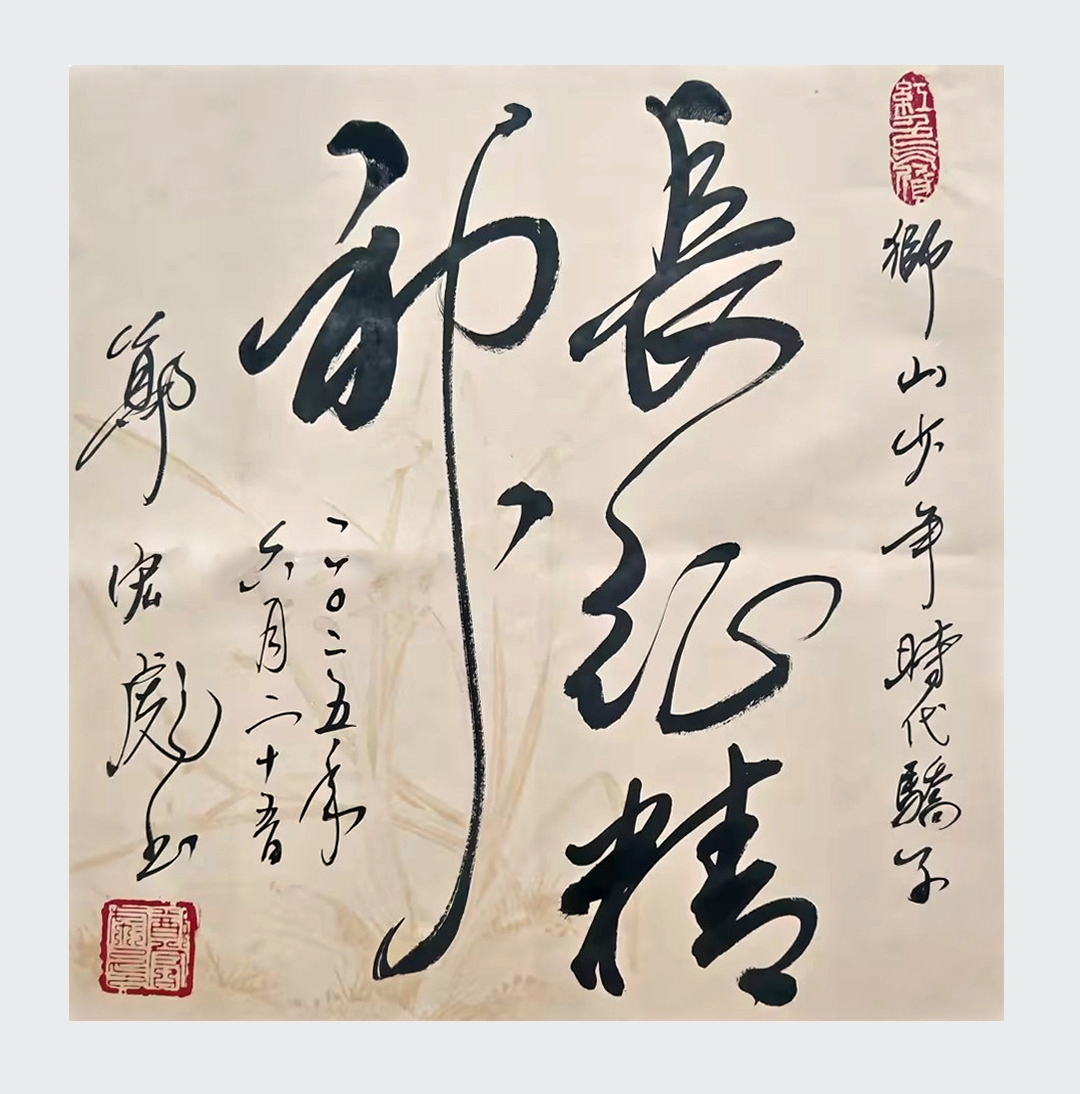 獅山少年時代驕子
長征精
神
二〇二五年
六月二十五日
鄭宏彪书